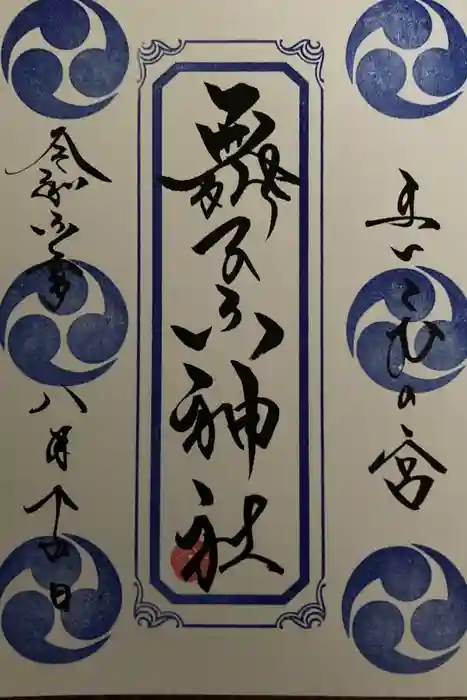 まいこむの宮
舞子六神社
令和六年八月十五日